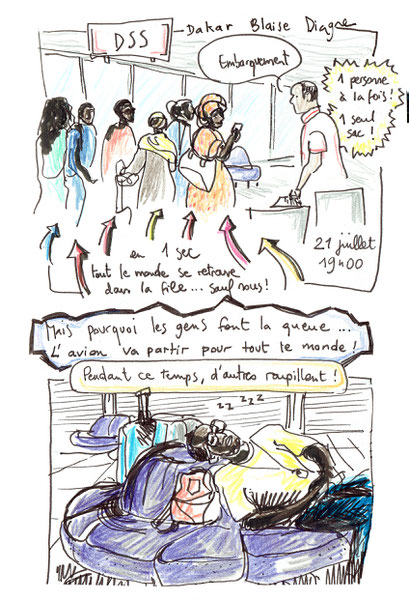 DSS
Dakar Blaise Diagne
Embarquement
1 personne
à la fois!
1 seul
sac!
21 juillet
19H00
en 1 sec
tout le monde se retrouve
dans la file... sauf nous!
Mais pourquoi les gens font la queue...
L'avion va partir pour tout le monde!
Pendant ce temps, d'autres roupillent!
zz zzz